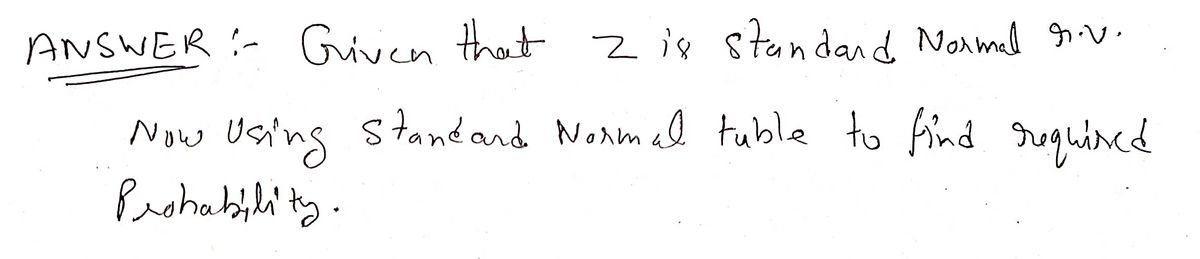 ANSWER :- Given that Z is standard Normal r.v.
Now Using standard Normal table to find required
Probability.